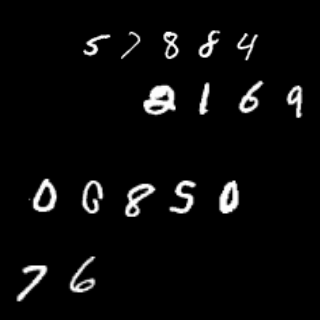 57884
2169
00850
76